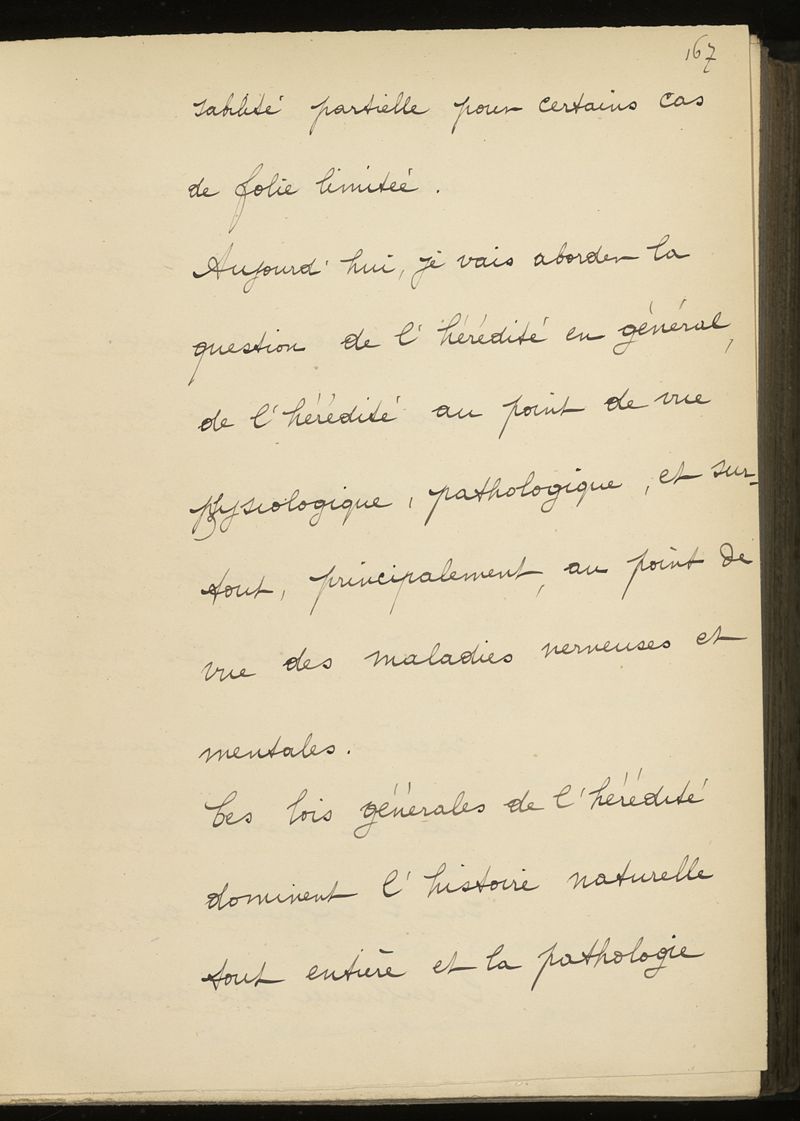 167
sabilité partielle pour certains cas
de folie limitée.
Aujourd'hui, je vais aborder la
question de l'hérédité en général,
de l'hérédité au point de vue
physiologique, pathologique, et sur-
tout, principalement, au point de
vue des maladies nerveuses et
mentales.
Ces lois générales de l'hérédité
dominent l'histoire naturelle
tout entière et la pathologie